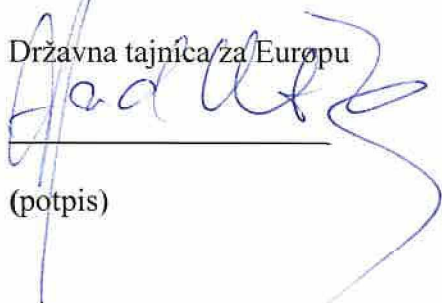 Državna tajnica za Europu
(potpis)